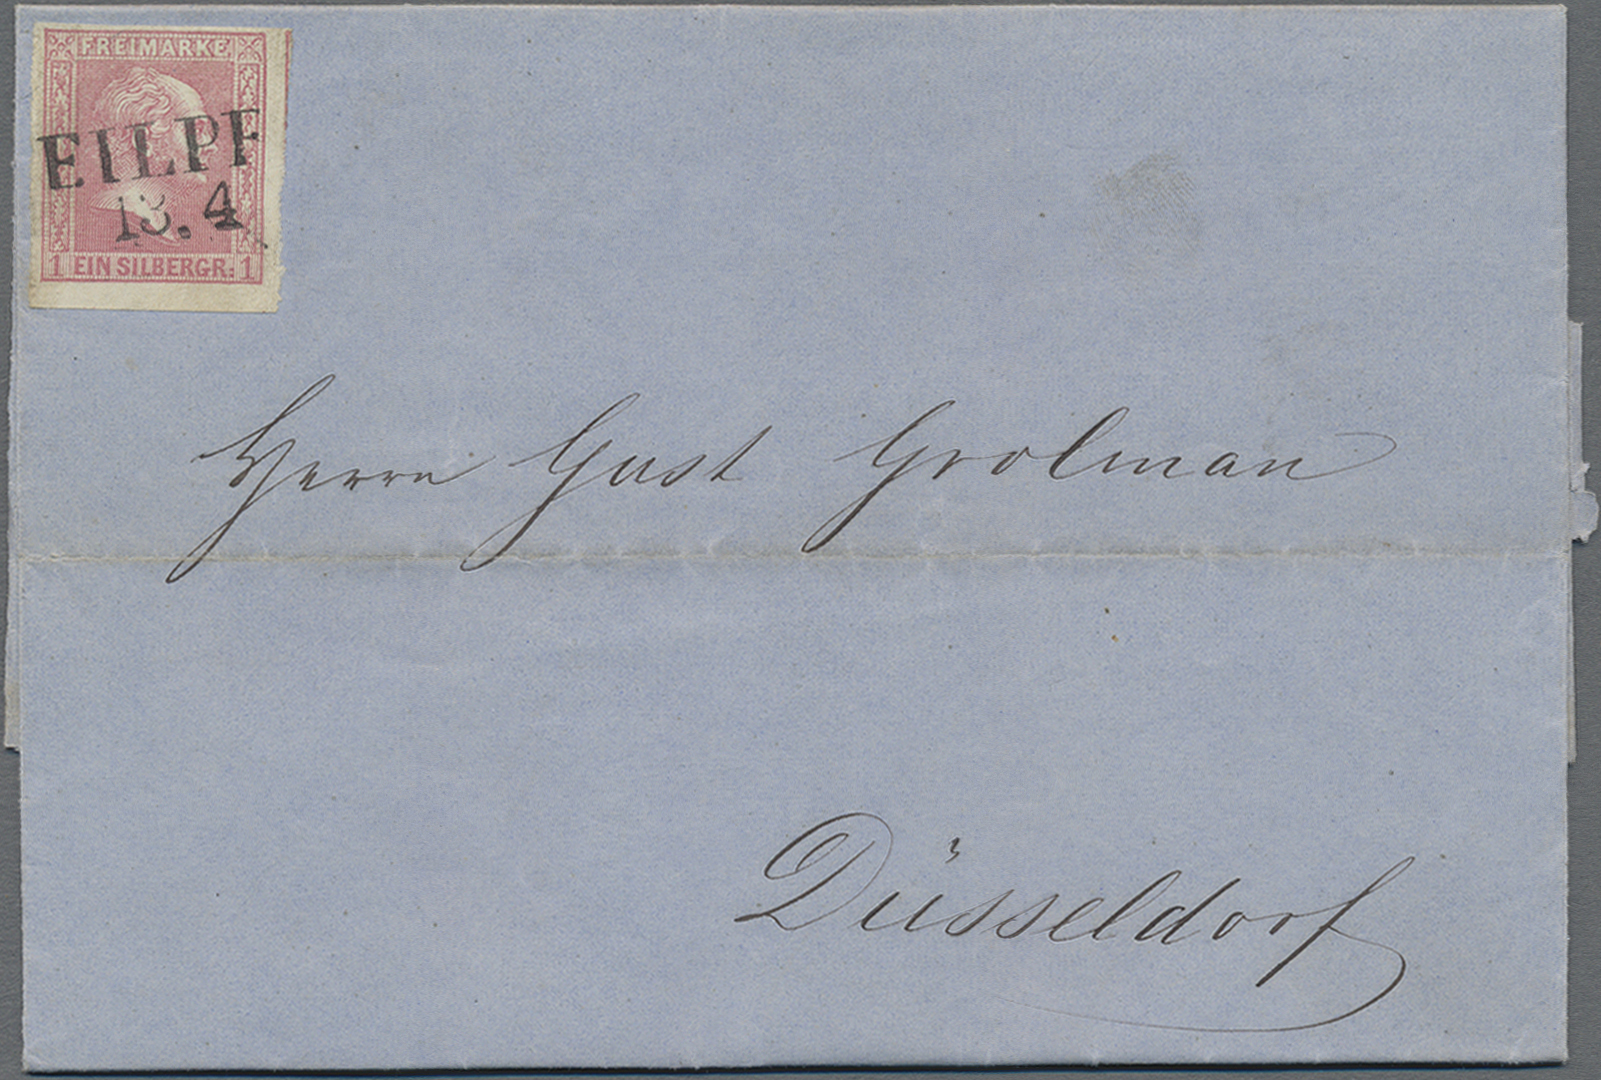 FREIMARKE
EILPF
13.4
1 EIN SILBERGR: 1
Herrn Gust Grolman
Düsseldorf